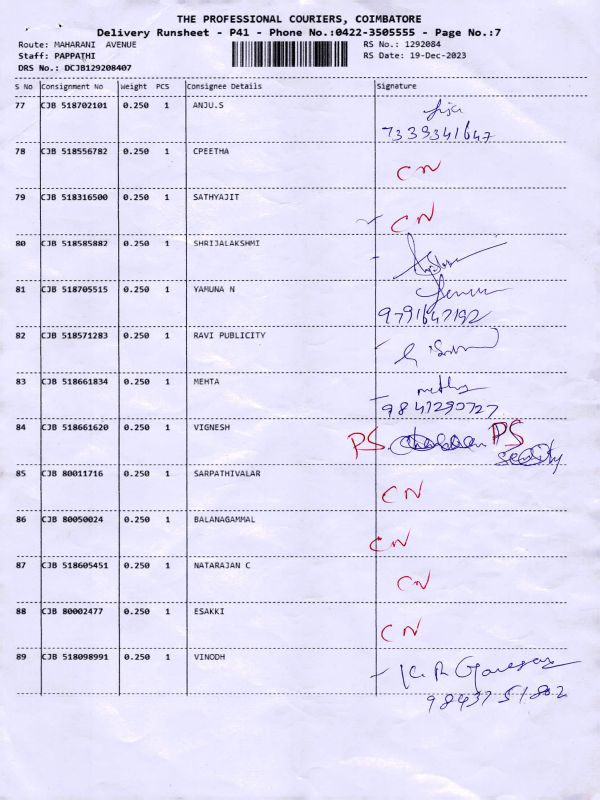 THE PROFESSIONAL COURIERS, COIMBATORE
Delivery Runsheet - P41 - Phone No.:0422-3505555 - Page No.:7
Route: MAHARANI AVENUE RS No.: 1292084
Staff: PAPPATHI RS Date: 19-Dec-2023
DRS No.: DCJB129208407
S No Consignment No Weight PCS Consignee Details Signature
77 CJB 518702101 0.250 1 ANJU.S
7339341647
78 CJB 518556782 0.250 1 CPEETHA CN
79 CJB 518316500 0.250 1 SATHYAJIT CN
80 CJB 518585882 0.250 1 SHRIJALAKSHMI
81 CJB 518705515 0.250 1 YAMUNA N
9791647192
82 CJB 518571283 0.250 1 RAVI PUBLICITY
83 CJB 518661834 0.250 1 MEHTA
84 CJB 518661620 0.250 1 VIGNESH PS PS
85 CJB 80011716 0.250 1 SARPATHIVALAR CN
86 CJB 80050024 0.250 1 BALANAGAMMAL CN
87 CJB 518605451 0.250 1 NATARAJAN C CN
88 CJB 80002477 0.250 1 ESAKKI CN
89 CJB 518098991 0.250 1 VINODH